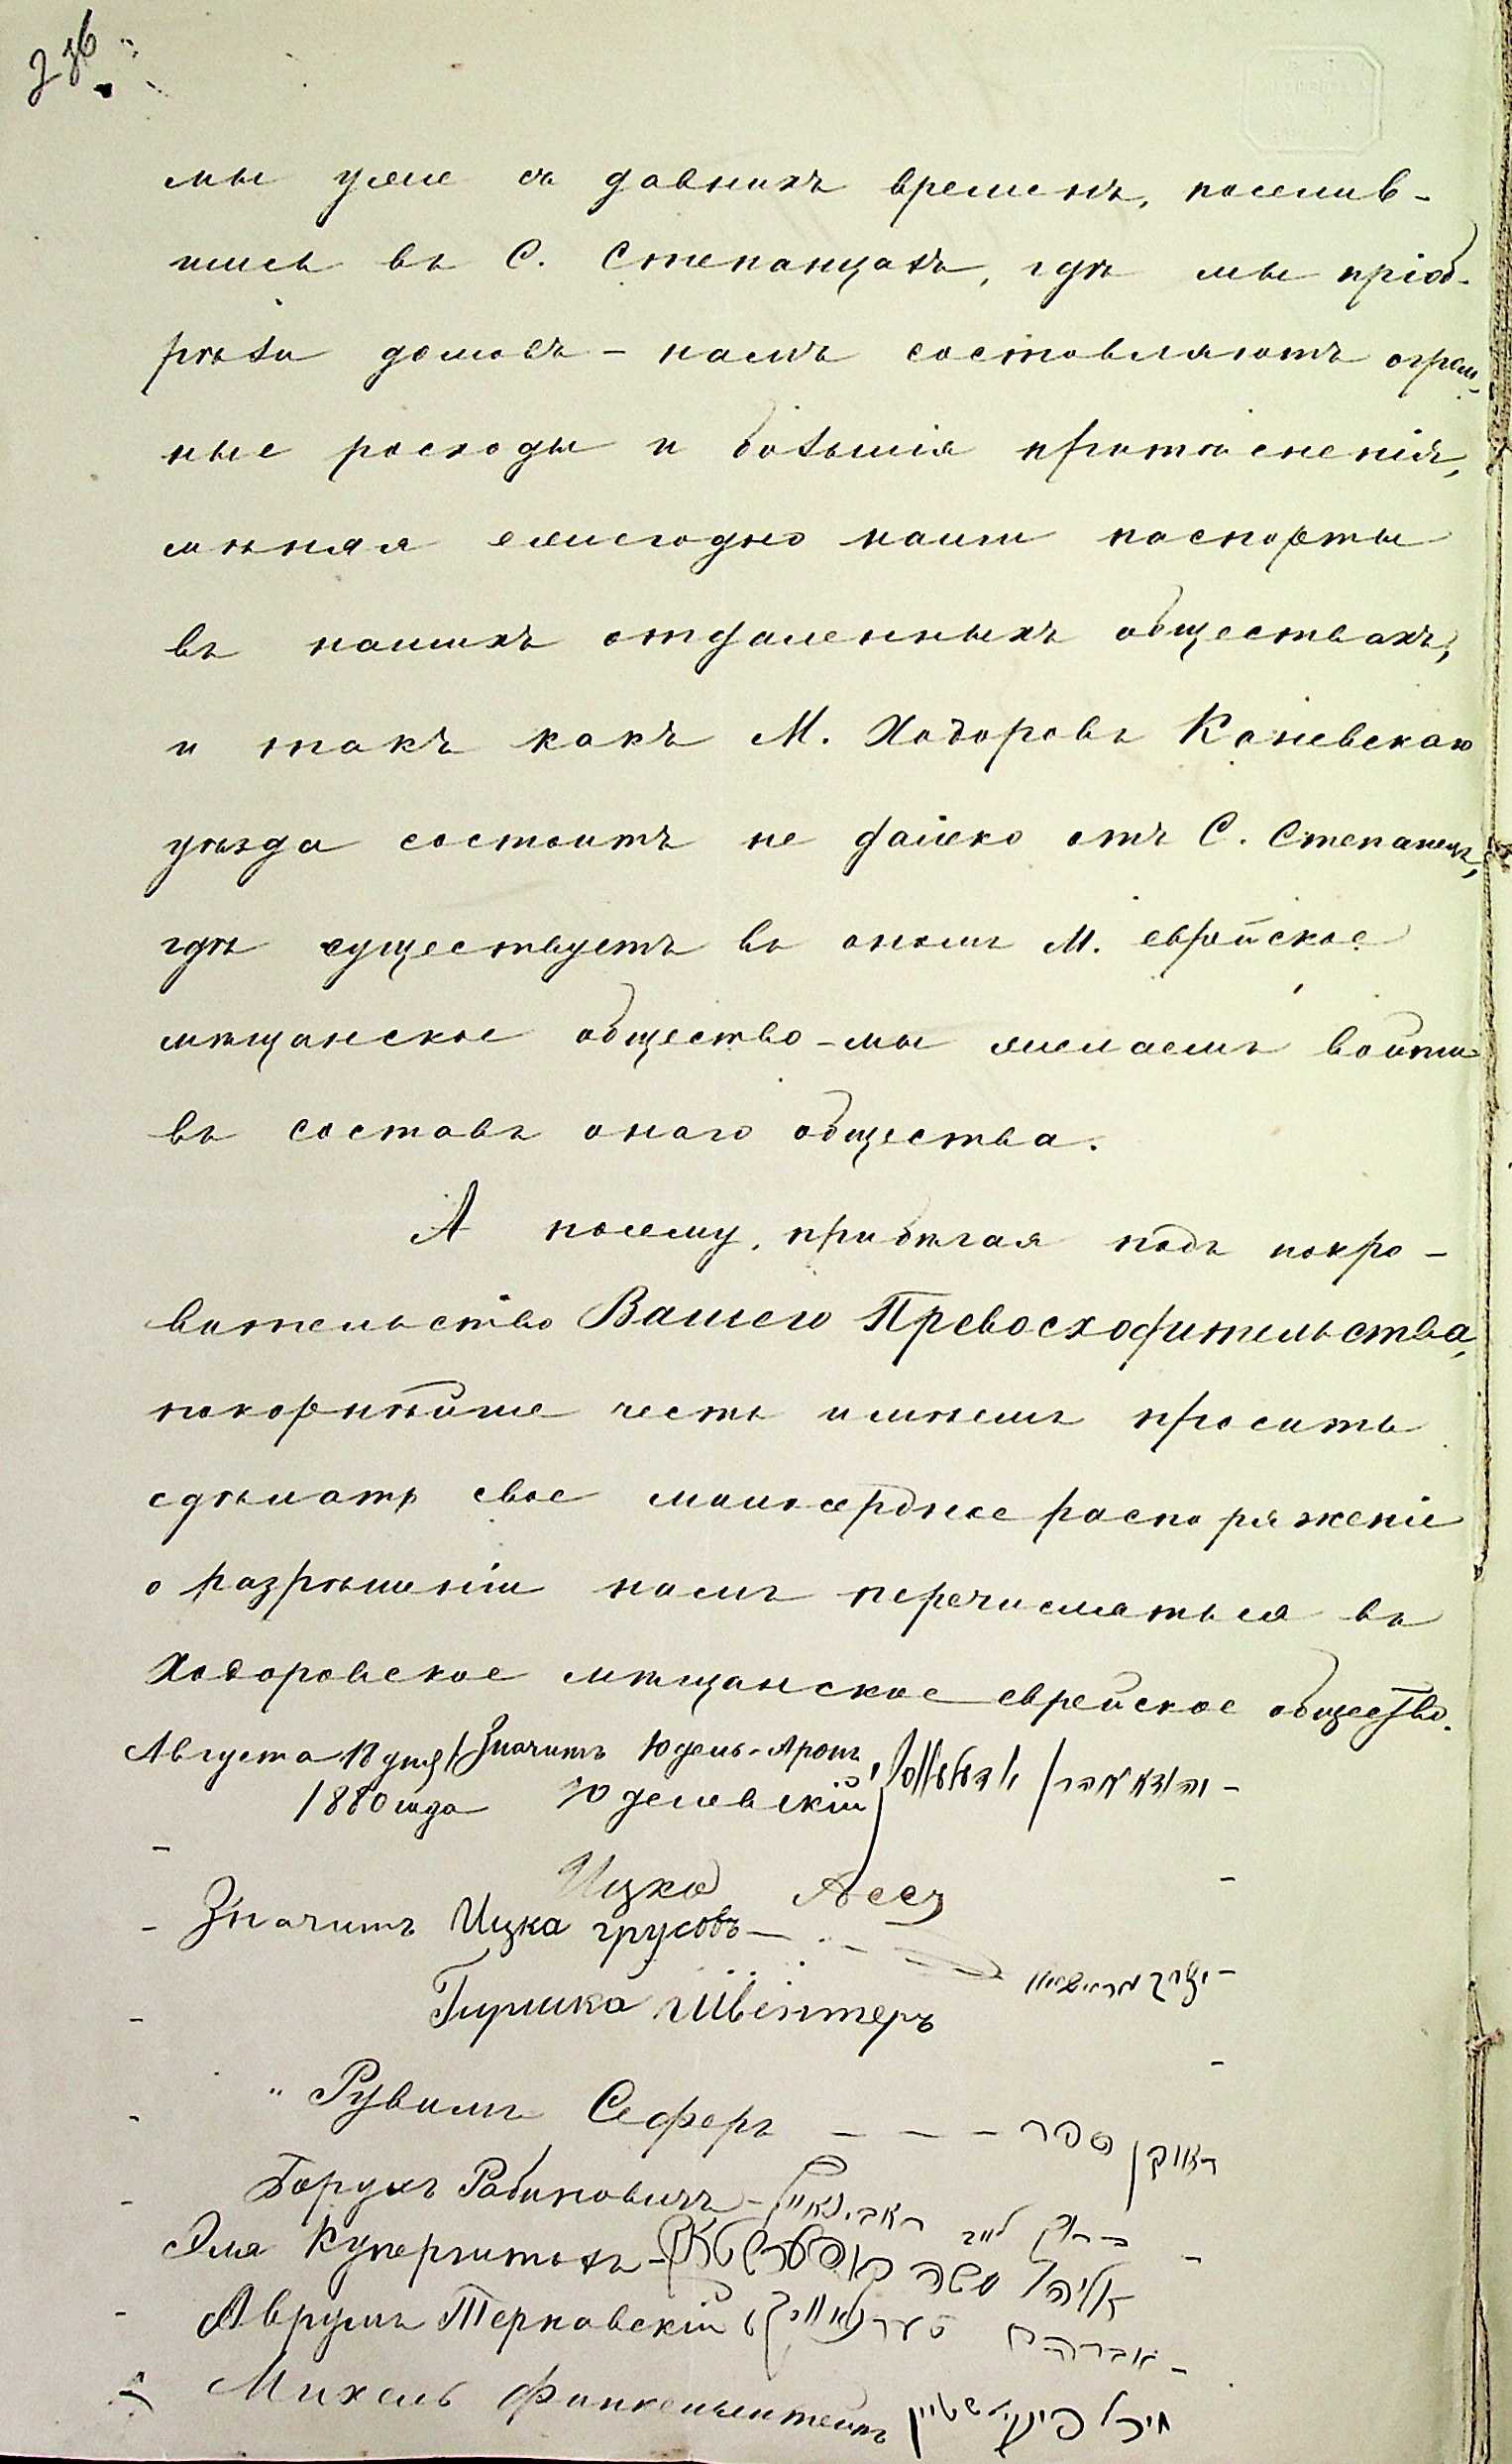 мы уже съ давнихъ временъ, поселив-
шись въ С. Степанцахъ, гдѣ мы пріоб-
рѣли домовъ – намъ составляютъ огром-
ные росходы и большія притѣсненія,
мѣняя ежегодно наши паспорты
въ нашихъ отдаленныхъ обществахъ,
и такъ какъ М. Ходоровъ Каневскаго
уѣзда состоитъ не далеко отъ С. Степанецъ,
гдѣ существуетъ въ ономъ М. еврейское
мѣщанское общество – мы желаемъ войти
въ составъ онаго общества.
А посему, прибѣгая подъ покро-
вительство Вашего Превосходительства,
покорнѣйше честь имѣемъ просить
сдѣлать свое милосердное распоряженіе
о разрѣшеніи намъ перечислиться въ
Ходоровское мѣщанское еврейское общество.
Августа 18 дня Значитъ Юдель-Аронъ
1880 года Юделевскій
Ицко Асез
Значитъ Ицка грусовъ
Гершка Швентеръ
" Рувимъ Сеферъ – – – ראובן ספר
Борухъ Рабиновичъ – ברוך לייב ראבינאוויץ
Эля Куперштохъ – אליהו משה
Аврумъ Терновскій אברהם
Михель Финкельштейнъ מיכל פינקילשטיין